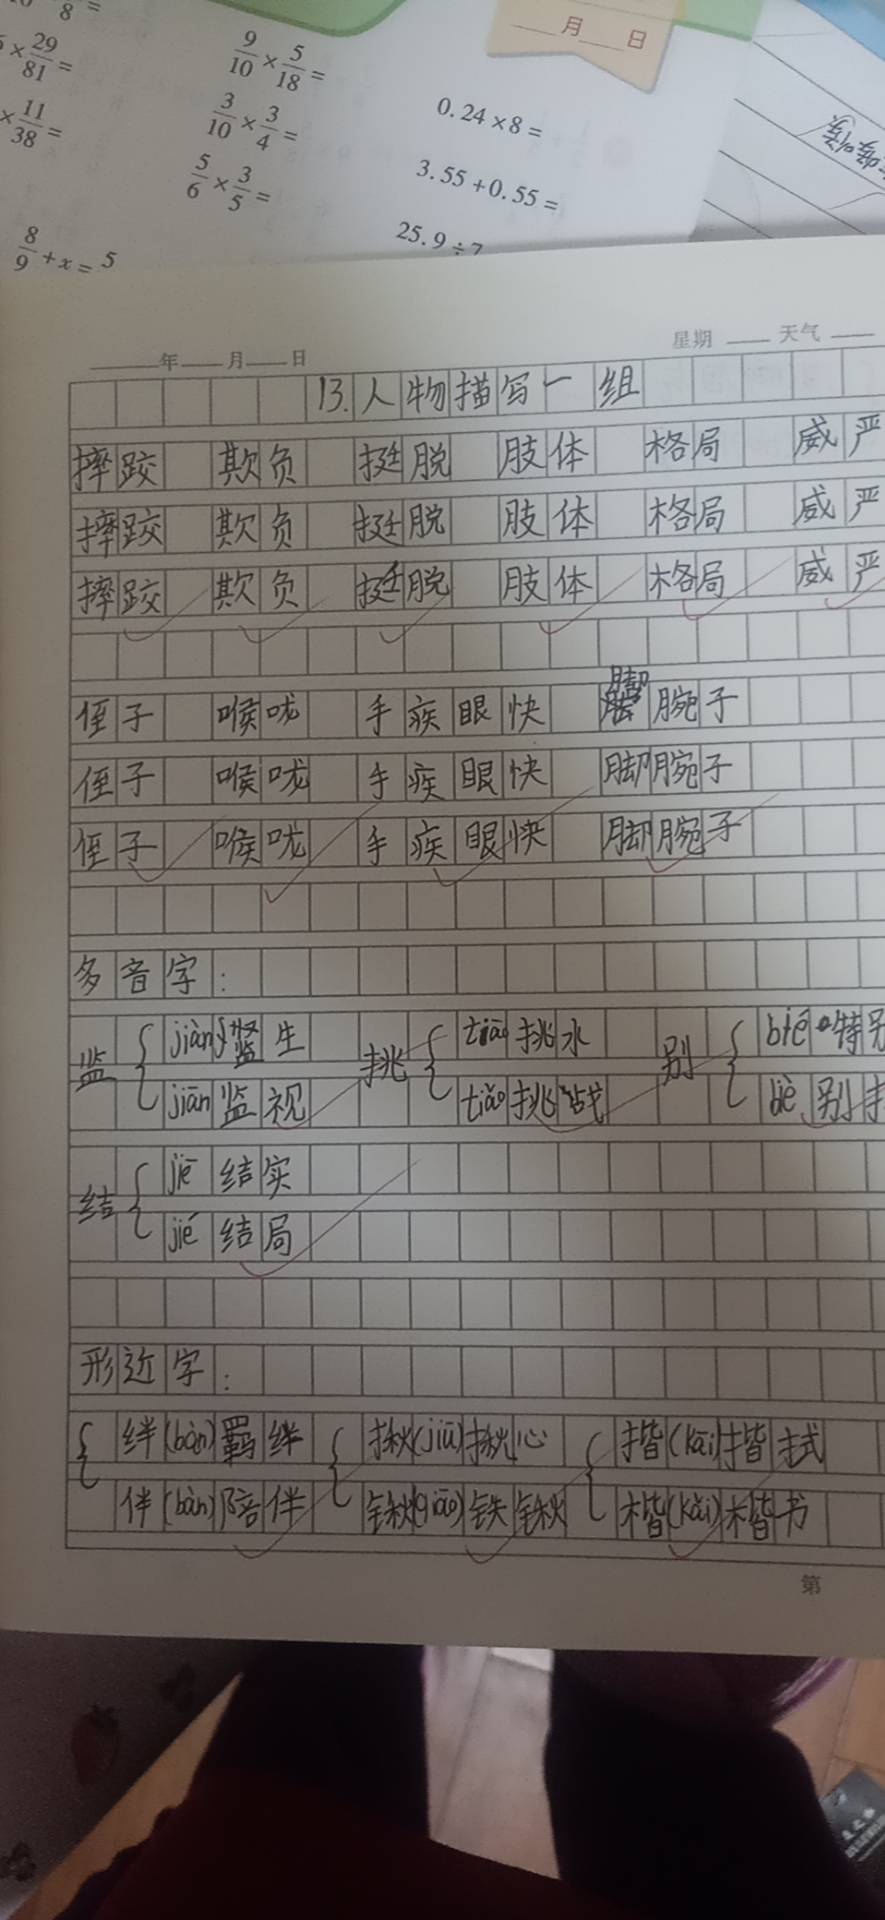 8 =
× 29/81 =
9/10 × 5/18 =
月 日
× 11/38 =
3/10 × 3/4 =
0.24×8=
5/6 × 3/5 =
3.55+0.55=
8/9 + x = 5
25.9÷7
年 月 日 星期 天气
13.人物描写一组
摔跤 欺负 挺脱 肢体 格局 威严
摔跤 欺负 挺脱 肢体 格局 威严
摔跤 欺负 挺脱 肢体 格局 威严
侄子 喉咙 手疾眼快 脚腕子
侄子 喉咙 手疾眼快 脚腕子
侄子 喉咙 手疾眼快 脚腕子
多音字:
监 { jiàn 监生 挑 { tiāo 挑水 别 { bié 特别
jiān 监视 tiǎo 挑战 biè 别扌
结 { jiē 结实
jié 结局
形近字:
{ 绊(bàn)羁绊 { 揪(jiū)揪心 { 揩(kāi)揩拭
伴(bàn)陪伴 锹(qiāo)铁锹 楷(kǎi)楷书
第